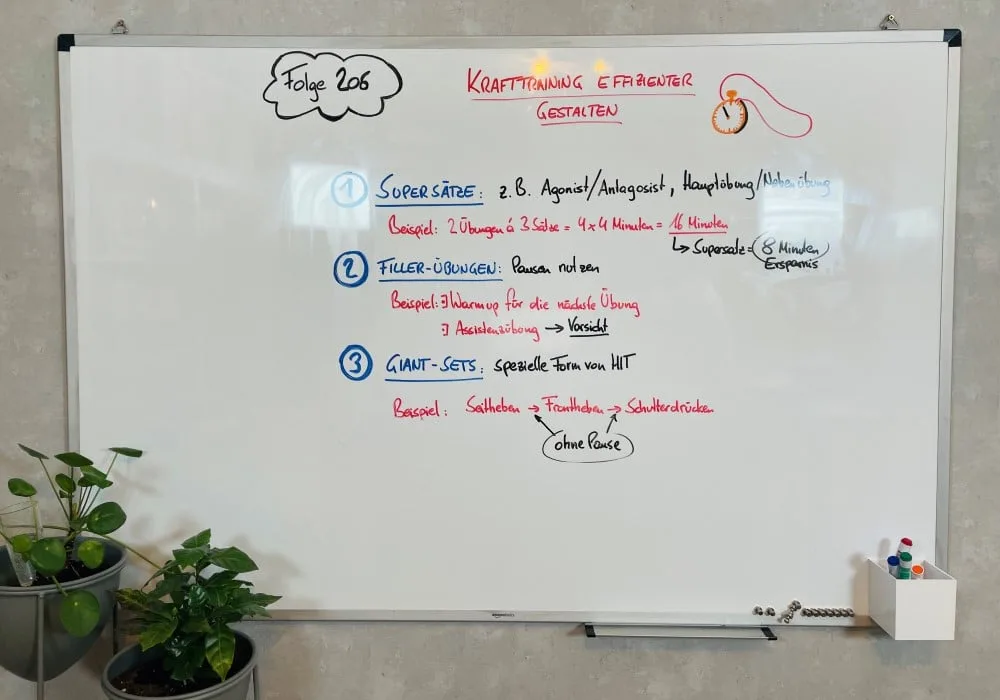 Folge 206
KRAFTTRAINING EFFIZIENTER
GESTALTEN
1 SUPERSÄTZE: z.B. Agonist/Antagosist, Hauptübung/Nebenübung
Beispiel: 2 Übungen á 3 Sätze = 4 x 4 Minuten = 16 Minuten
↳ Supersatz = 8 Minuten
Ersparnis
2 FILLER-ÜBUNGEN: Pausen nutzen
Beispiel: Warmup für die nächste Übung
Assistenzübung → Vorsicht
3 GIANT-SETS: spezielle Form von HIT
Beispiel: Seitheben → Frontheben → Schulterdrücken
ohne Pause
amazonbasics